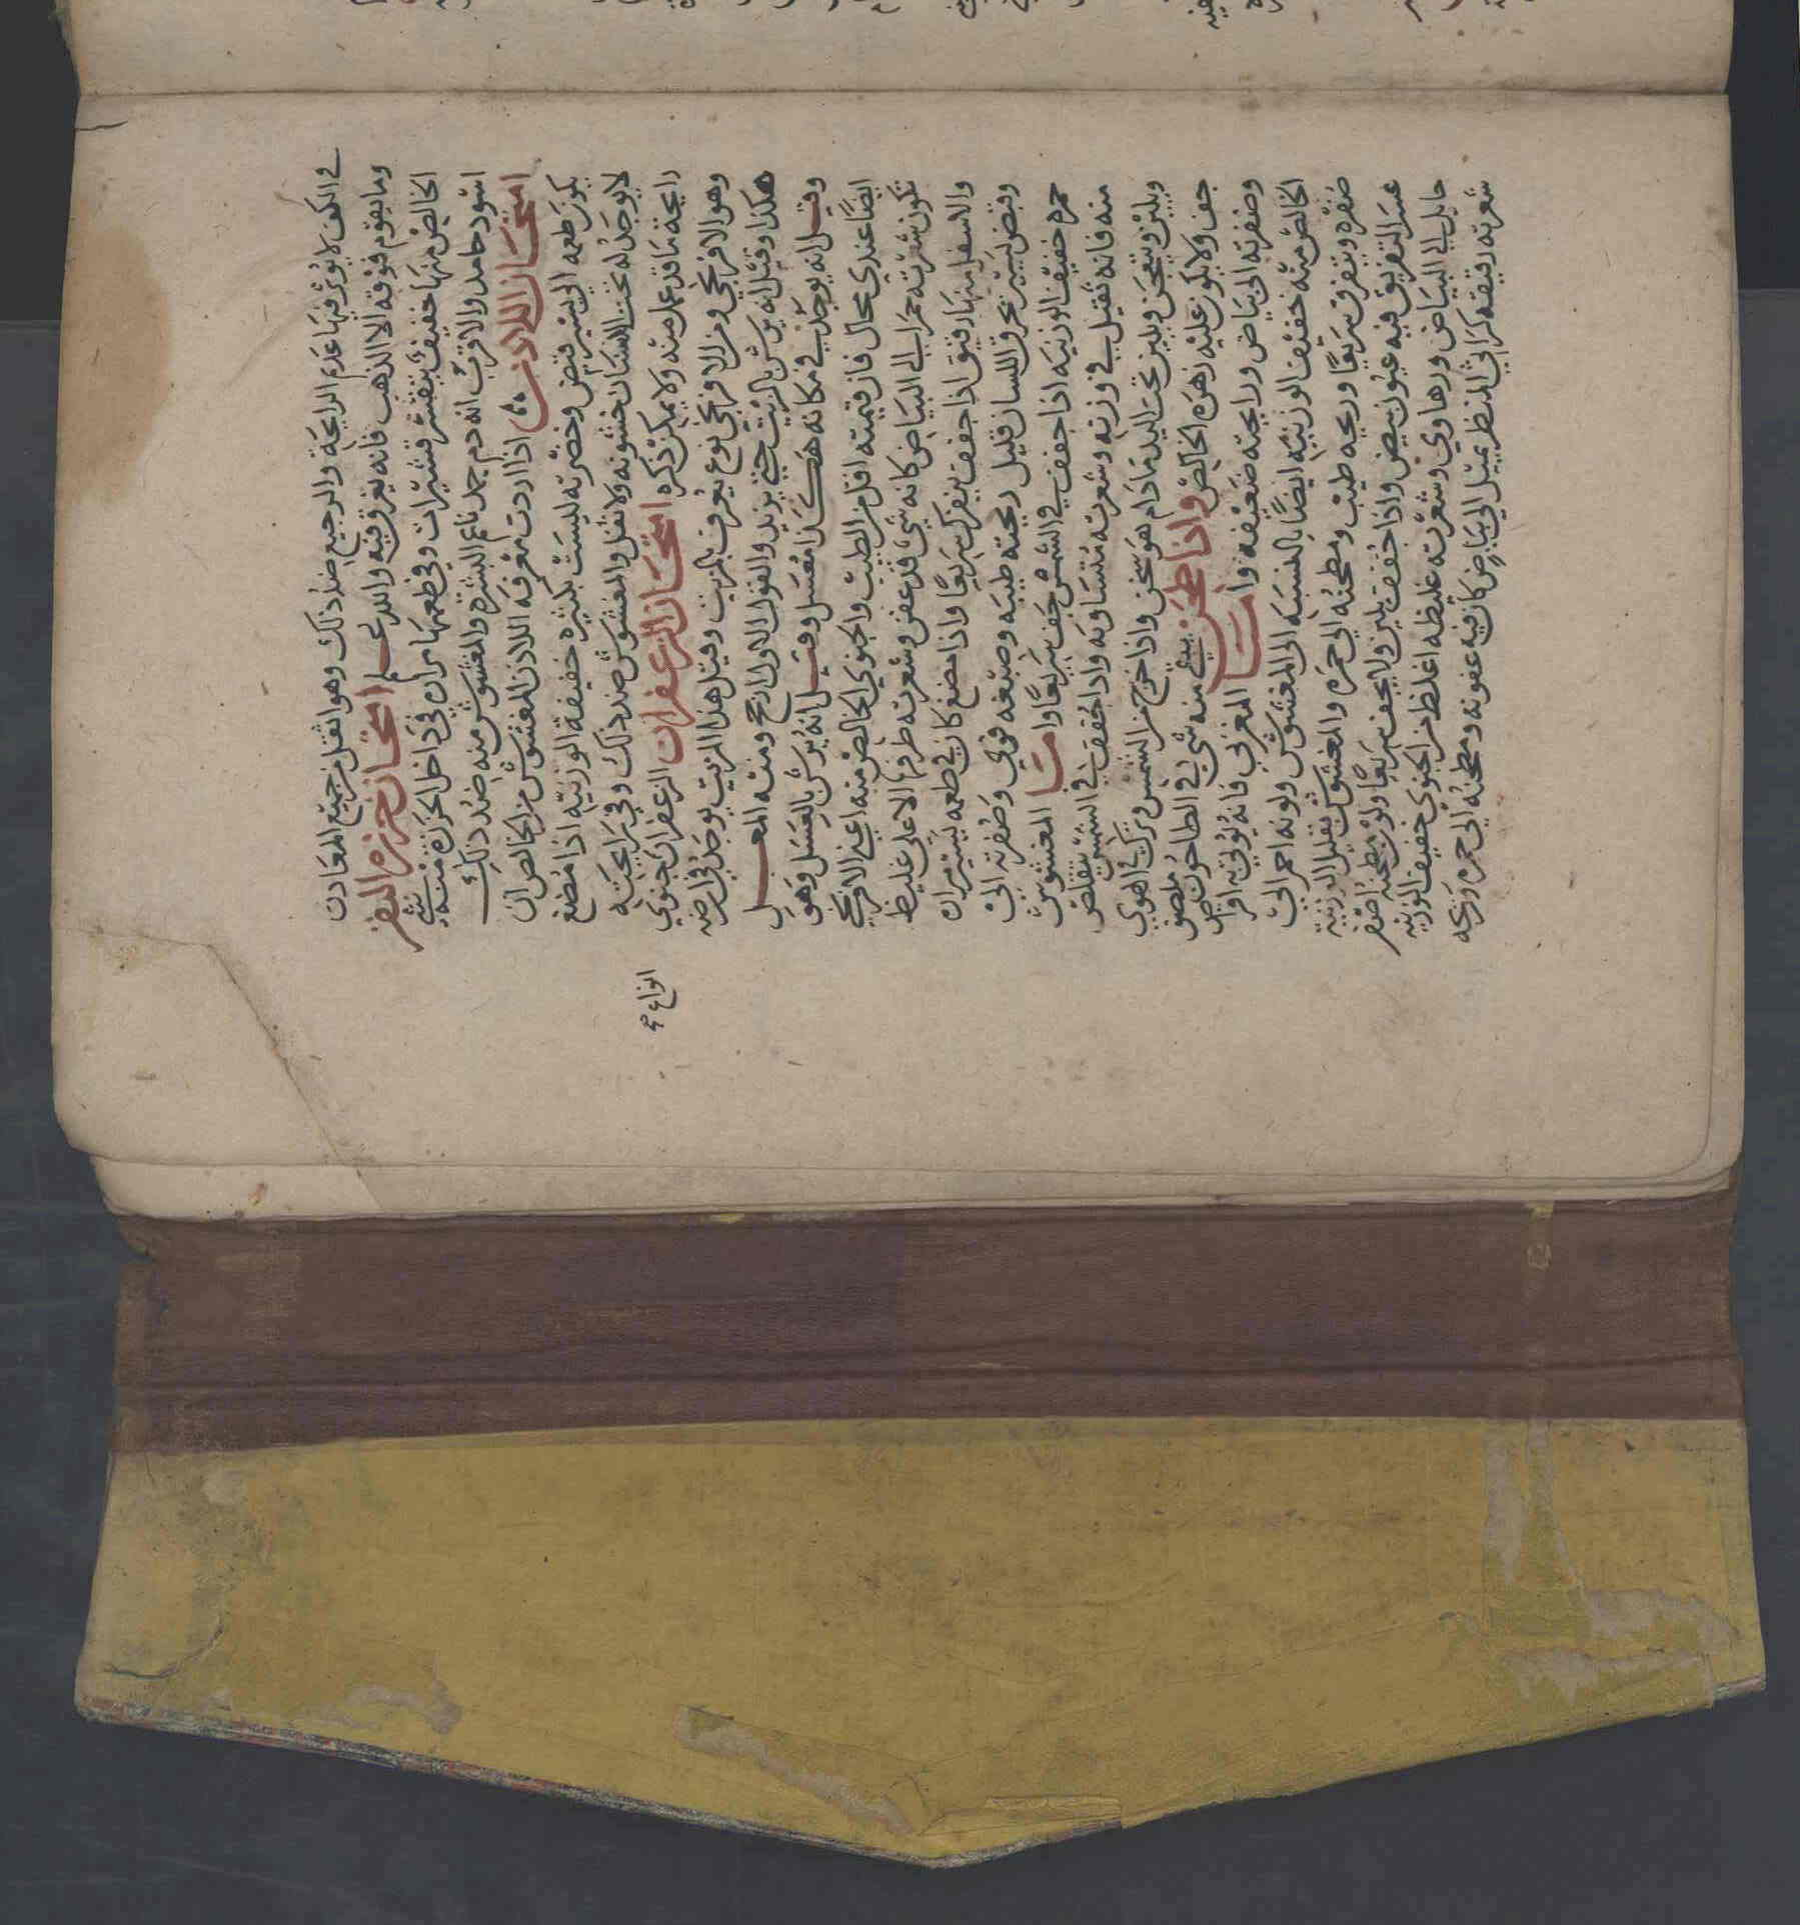 في الكف لا يؤثر فيها عدم الرايحة والرجيع ضد ذلك وهو اثقل من جميع المعادن
وما يقوم فوقه الا الذهب فانه يغرق فيه والله اعلم امتحان خرزه البقر
الخالص منها خفيف يتقشر قشيرات وفي طعمها مراره في داخل الخرزه منه شي
اسود جامد والاقرب انه دم جمد ناعم البشره والمغشوش منه ضد ذلك
امتحان اللادن اذا اردت معرفة اللادن المغشوش من الخالص ان
يكون طعمه الى يسير قبض وخضرته ليست بكثيره خفيفة الوزنيه اذا مضغ
لا يوجد له تحت الاسنان خشونه ولا ثقل والمغشوش ضد ذلك وفي رايحته
رايحة ما قد عمل منه ولا يمكن ذكره امتحان الزعفران الزعفران جنوي
وهو الافرنجي ومن الافرنجي نوع يعرف بالمزيت وقيل هذا المزيت يوجد في ارضه
هكذا وقيل انه يرش بالزيت حتى يزيد والقول الاول ارجح ومنه المعسل
وقيل انه يوجد في مكانه هكذا معسل وقيل انه يرش بالعسل وهو
ايضا عندي محال فان قيمته اقل من الطيب والجنوي الخالص منه اعني الافرنجي
تكون شعرته حمرا الى البياض كانه شي قد عفن وشعرته طرفها الاعلى غليظ
والاسفل منها رقيق اذا جفف ينفرك سريعا واذا مضغ كان في طعمه يسير مراره
وقبض يسير يحرق اللسان قليل ريحته طيبه وصبغه قوي وصفرته الى
حمره خفيف الوزنيه اذا جفف في الشمس جف سريعا واما المغشوش
منه فانه ثقيل في وزنه وشعرته متساويه واذا جفف في الشمس تقلص
ويلين ويتعجن ويلين تحت اليد ما دام هو سخن واذا خرج من الشمس وترك في الهوي
جف ولا يكون عليه زهرة الخالص واذا طحن يبقى منه شي في الطاحون ملصق
وصفرته الى بياض ورايحته ضعيفه واما المغربي فانه يؤتى به اقراص
الخالص منه خفيف الوزنيه ايضا بالنسبه الى المغشوش ولونه احمر الى
صفره ويتفرق سريعا وريحه طيب ومطحنه الى حمره والمغشوش ثقيل الوزنيه
عسر التفريق فيه عيون بيض واذا جفف يلين ولا يجف سريعا ولون طحنه اصفر
حايل الى البياض ورهاوي وشعرته غليظه اغلظ من الجنوي خفيف الوزنيه
شعرته رقيقه كراثي المنظر يميل الى بياض كان فيه عفونه ومطحنه الى حمره وريحه
انواع صح